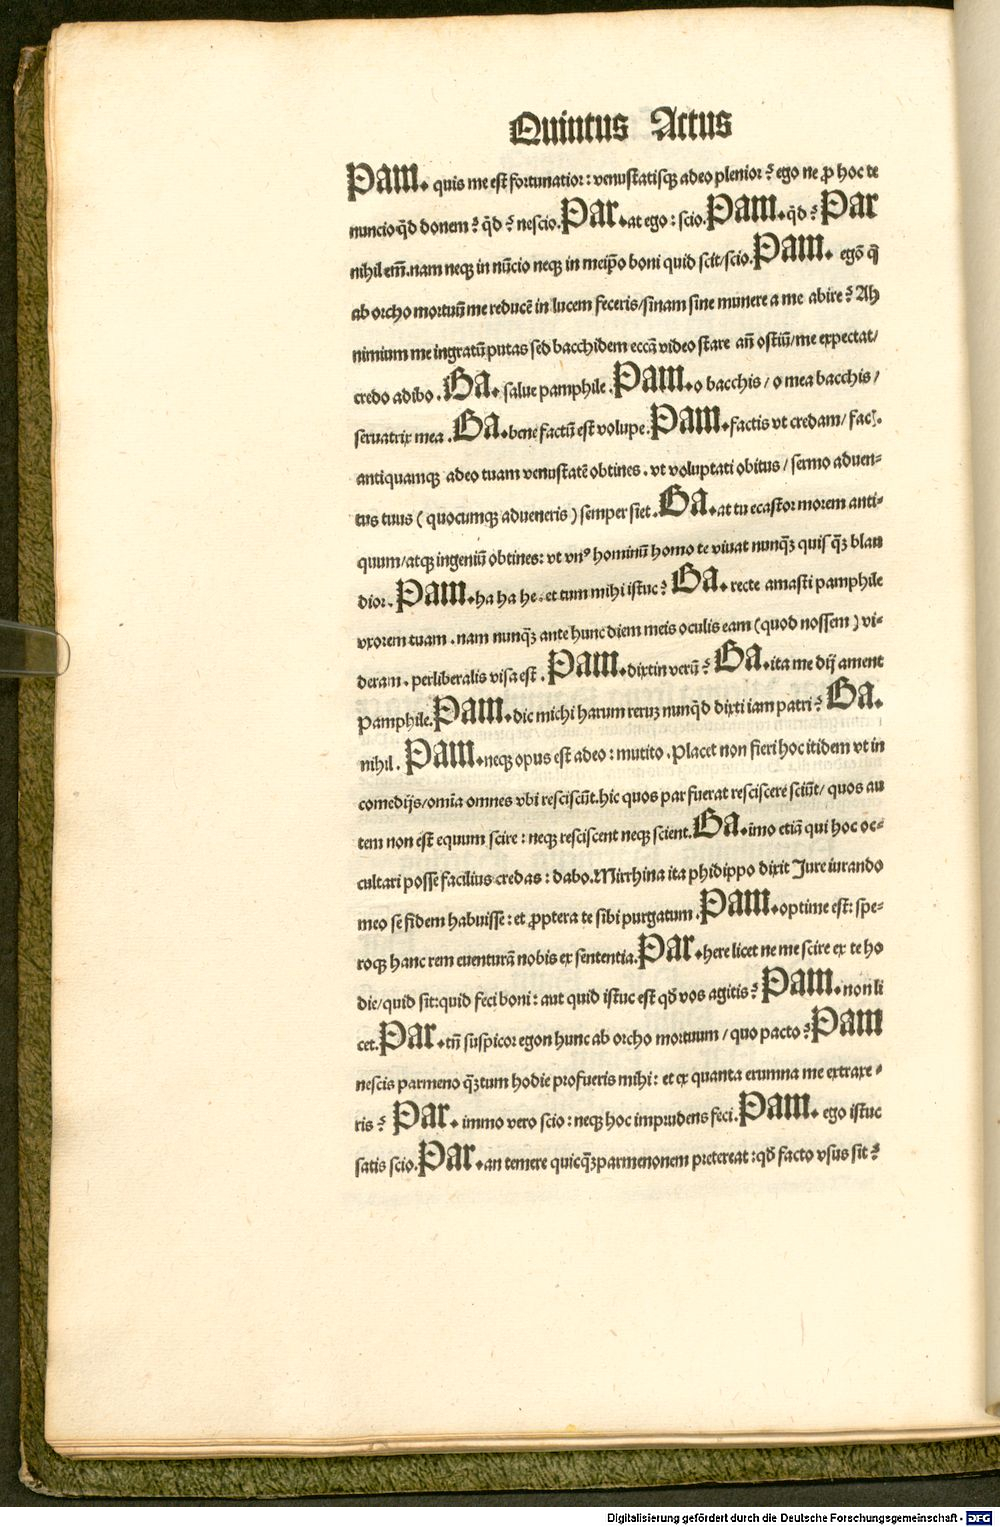 Quintus Actus
Pam. quis me est fortunatior: venustatisqꝫ adeo plenior? ego ne ꝓ hoc te
nuncio qd̄ donem? qd̄? nescio. Par. at ego: scio. Pam. qd̄? Par
nihil em̄. nam neqꝫ in nūcio neqꝫ in meip̄o boni quid scit/scio. Pam. egō q̄
ab orcho mortuū me reducē in lucem feceris/sinam sine munere a me abire? Ah
nimium me ingratū putas sed bacchidem eccā video stare an̄ ostiū/me expectat/
credo adibo. Ba. salue pamphile. Pam. o bacchis/ o mea bacchis/
seruatrix mea. Ba. bene factū est volupe. Pam. factis vt credam/ fac.
antiquamqꝫ adeo tuam venustatē obtines. vt voluptati obitus/ sermo aduen-
tus tuus ( quocumqꝫ adueneris ) semper siet. Ba. at tu ecastor morem anti-
quum/atqꝫ ingeniū obtines: vt vnꝰ hominū homo te viuat nunqꝫ̄ quis qꝫ̄ blan
dior. Pam. ha ha he. et tum mihi istuc? Ba. recte amasti pamphile
vxorem tuam. nam nunqꝫ̄ ante hunc diem meis oculis eam (quod nossem) vi-
deram. perliberalis visa est. Pam. dixtin verū? Ba. ita me dij ament
Pamphile. Pam. dic michi harum reruꝫ nunqd̄ dixti iam patri? Ba.
nihil. Pam. neqꝫ opus est adeo: mutito. Placet non fieri hoc itidem vt in
comedijs/om̄ia omnes vbi resciscūt. hic quos par fuerat resciscere sciūt/ quos au
tem non est equum scire: neqꝫ resciscent neqꝫ scient. Ba. imo etiā qui hoc oc-
cultari posse facilius credas: dabo. Mirrhina ita phidippo dixit Iure iurando
meo se fidem habuisse: et ꝓptera te sibi purgatum. Pam. optime est: spe-
roqꝫ hanc rem euenturā nobis ex sententia. Par. here licet ne me scire ex te ho
die/quid sit: quid feci boni: aut quid istuc est qd̄ vos agitis? Pam. non li
cet. Par. tn̄ suspicor egon hunc ab orcho mortuum/ quo pacto? Pam
nescis parmeno qꝫ̄tum hodie profueris mihi: et ex quanta erumna me extraxe-
ris? Par. immo vero scio: neqꝫ hoc imprudens feci. Pam. ego istuc
satis scio. Par. an temere quicqꝫ̄ parmenonem pretereat: qd̄ facto vsus sit?
Digitalisierung gefördert durch die Deutsche Forschungsgemeinschaft - DFG